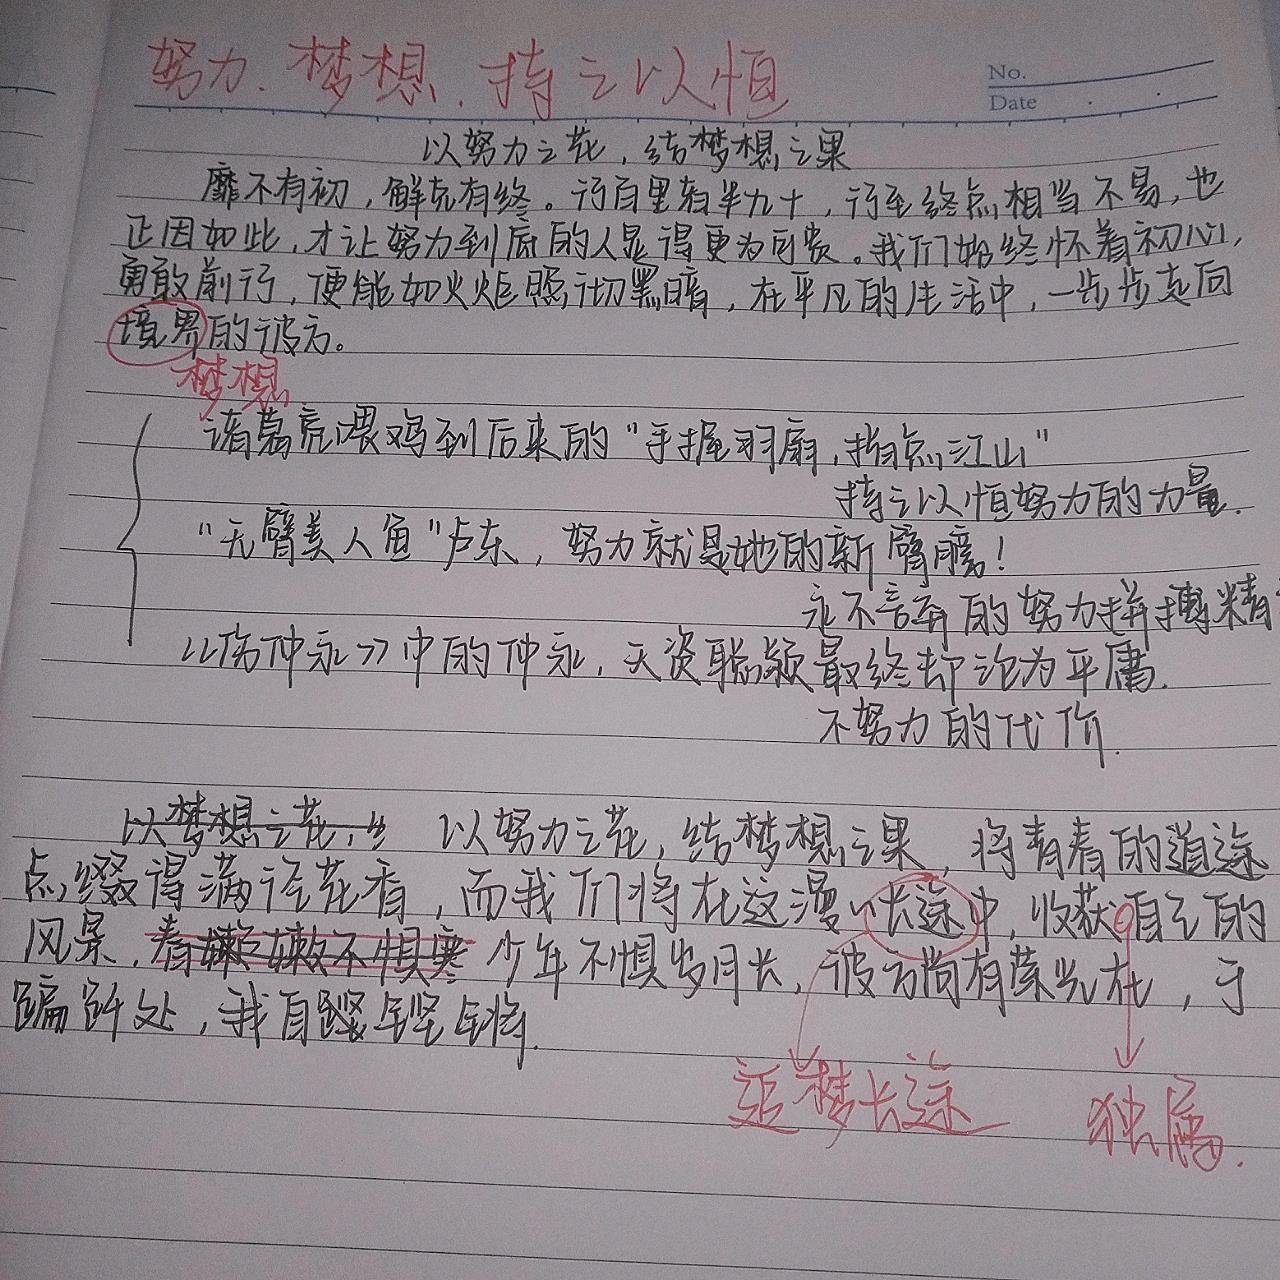 努力.梦想.持之以恒
No.
Date
以努力之花,结梦想之果
靡不有初,鲜克有终。行百里者半九十,行至终点相当不易,也
正因如此,才让努力到底的人显得更为可贵。我们始终怀着初心,
勇敢前行,便能如火炬照彻黑暗,在平凡的生活中,一步步走向
境界的彼方。
梦想
诸葛亮喂鸡到后来的“手握羽扇,指点江山”
持之以恒努力的力量.
“无臂美人鱼”卢东,努力就是她的新臂膀!
永不言弃的努力拼搏精
《伤仲永》中的仲永,天资聪颖最终却沦为平庸.
不努力的代价.
以梦想之花, 以努力之花,结梦想之果,将青春的道途
点缀得满径花香,而我们将在这漫漫长途中,收获自己的
风景, 少年不惧岁月长,彼方尚有荣光在,于
蹁跹处,我自铿锵.
追梦长途
独属.